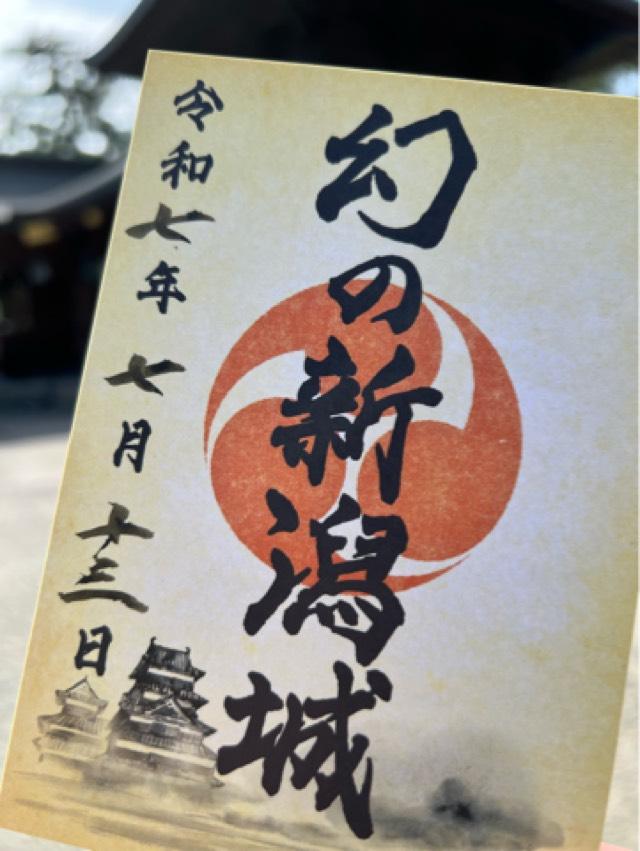 幻の新潟城
令和七年七月十三日